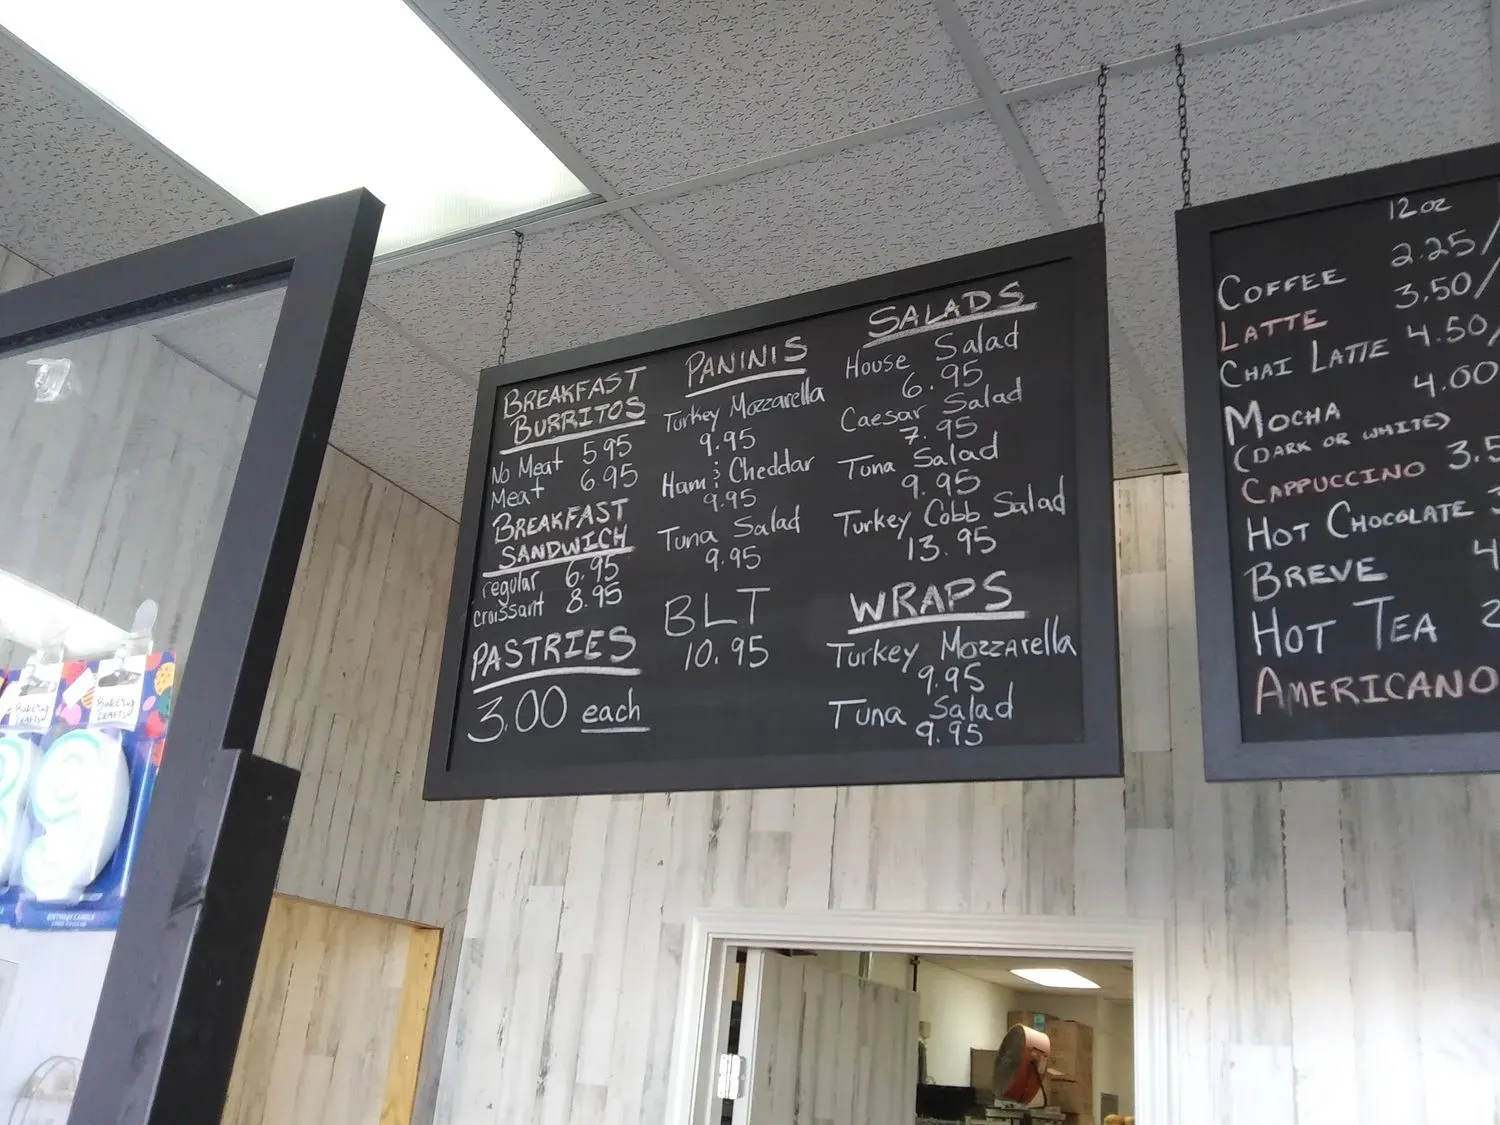 BREAKFAST
BURRITOS
No Meat 5.95
Meat 6.95
BREAKFAST
SANDWICH
regular 6.95
croissant 8.95
PASTRIES
3.00 each
PANINIS
Turkey Mozzarella
9.95
Ham & Cheddar
9.95
Tuna Salad
9.95
BLT
10.95
SALADS
House Salad
6.95
Caesar Salad
7.95
Tuna Salad
9.95
Turkey Cobb Salad
13.95
WRAPS
Turkey Mozzarella
9.95
Tuna Salad
9.95
12oz
COFFEE 2.25/
LATTE 3.50/
CHAI LATTE 4.50/
MOCHA 4.00
(DARK OR WHITE)
CAPPUCCINO 3.5
HOT CHOCOLATE 3
BREVE 4
HOT TEA 2
AMERICANO
Bakery
CRAFTS
Bakery
CRAFTS
9
BIRTHDAY CANDLE